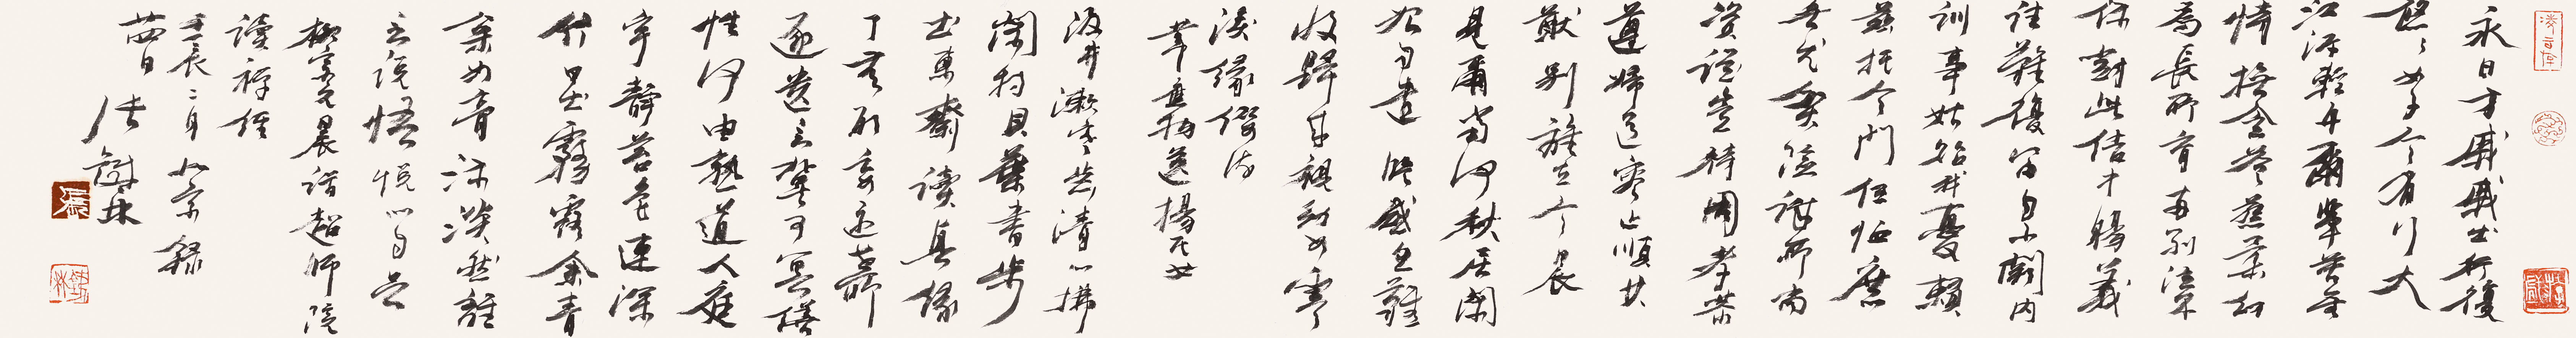 永日方戚戚出行復
悠々女子今有行大
江溯輕舟爾輩苦無
恃撫念益慈柔幼
為長所育兩別泣不
休對此結中腸義
往難復留自小闕內
訓事姑貽我憂賴
茲托令門任恤庶
無尤貧儉誠所尚
資從豈待周孝恭
遵婦道容止順其
猷別離在今晨
見爾當何秋居閑
始自遣臨感忽難
收歸來視幼女零
淚緣纓流
韋應物送楊氏女
汲井漱寒齒清心拂
閑持貝葉書步
出東齋讀真緣
了無取妄跡世所
逐遺言冀可冥繕
性何由熟道人庭
宇靜苔色連深
竹日出霧露餘青
松如膏沐澹然離
言說悟悅心自足
柳宗元晨詣超師院
讀禪經
壬辰二月北京錄